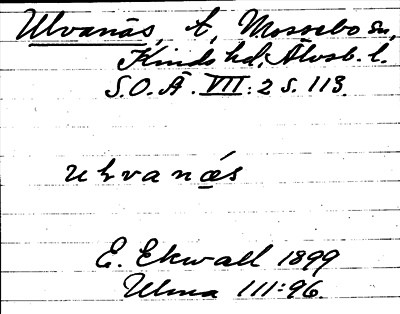 Ulvanäs, t, Mossebo sn,
Kinds hd, Älvsb. l.
S.O.Ä. VII: 2 s. 113.
E. Ekwall 1899
Ulma 111:96.